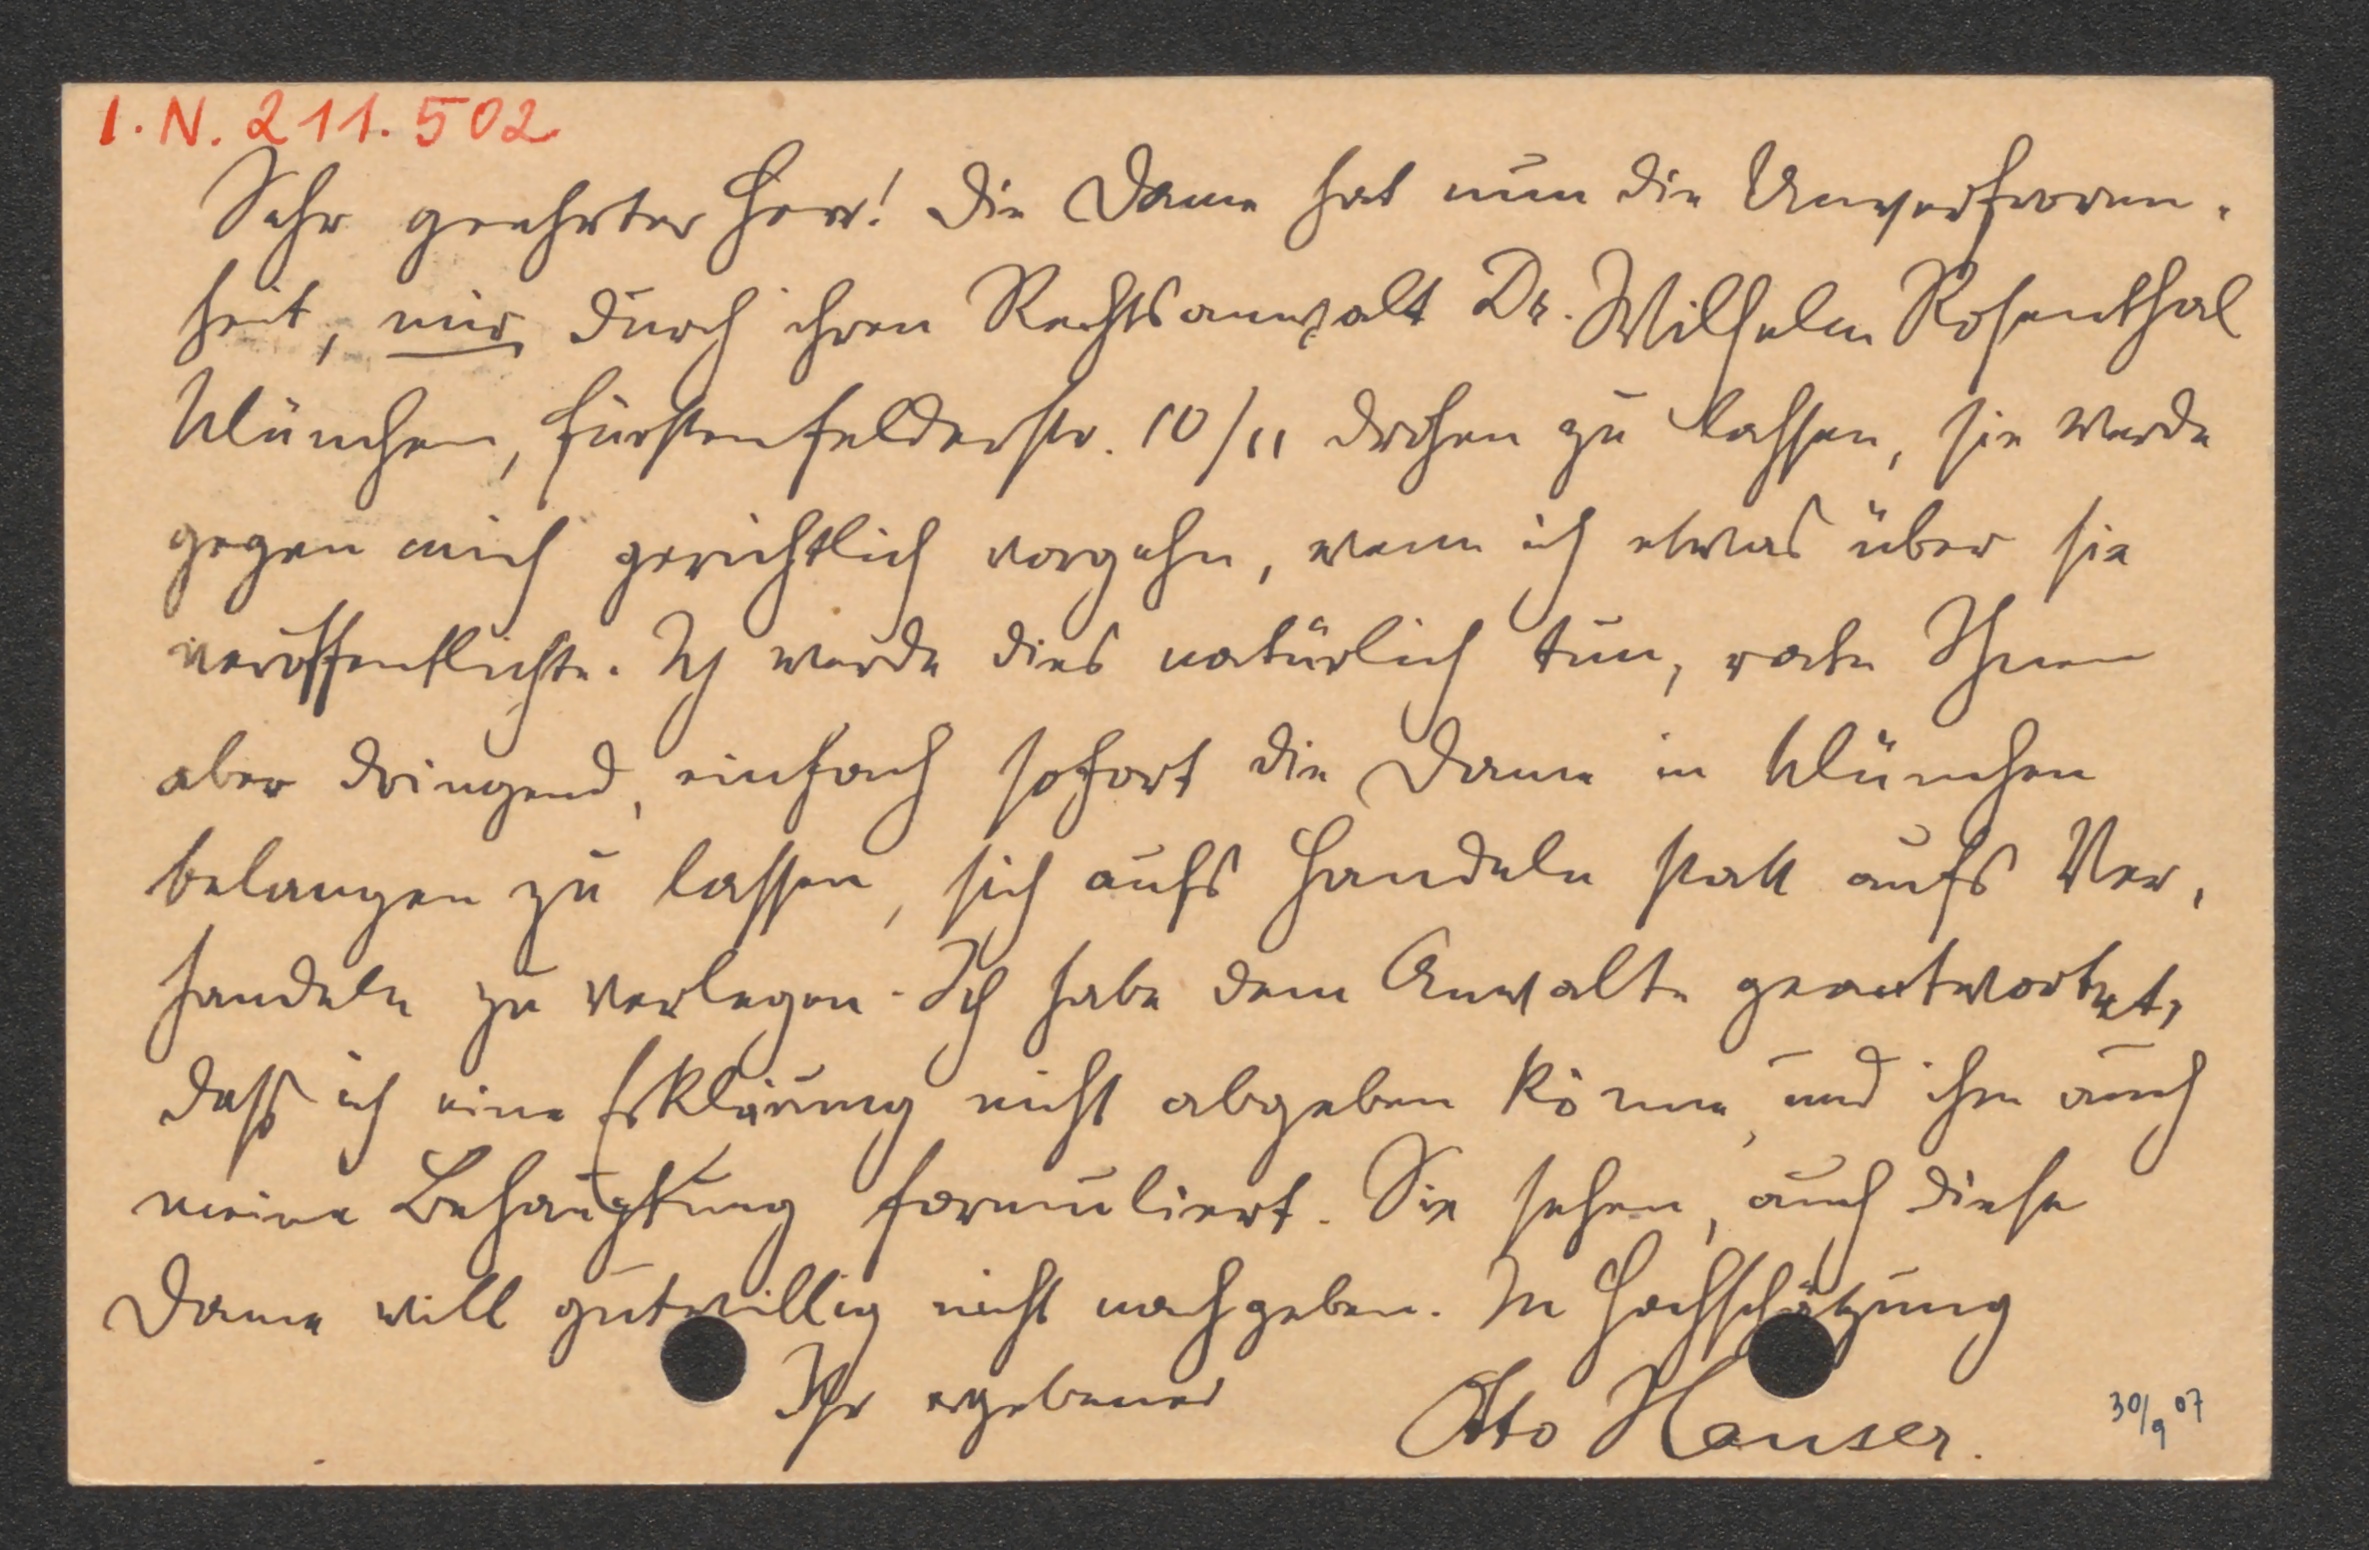 I. N. 211.502
Sehr geehrter Herr! Die Dame hat nun die Unverfroren-
heit, mir durch ihren Rechtsanwalt Dr. Wilhelm Rosenthal
München, Fürstenfelderstr. 10/II drohen zu lassen, sie werde
gegen mich gerichtlich vorgehn, wenn ich etwas über sie
veröffentlichte. Ich werde dies natürlich tun, rate Ihnen
aber dringend, einfach sofort die Dame in München
belangen zu lassen, sich aufs Handeln statt aufs Ver-
handeln zu verlegen. Ich habe dem Anwalte geantwortet,
daß ich eine Erklärung nicht abgeben könne, und ihm auch
meine Behauptung formuliert. Sie sehen, auch diese
Dame will gutwillig nicht nachgeben. In Hochschätzung
Ihr ergebener
Otto Hauser.
30/9 07